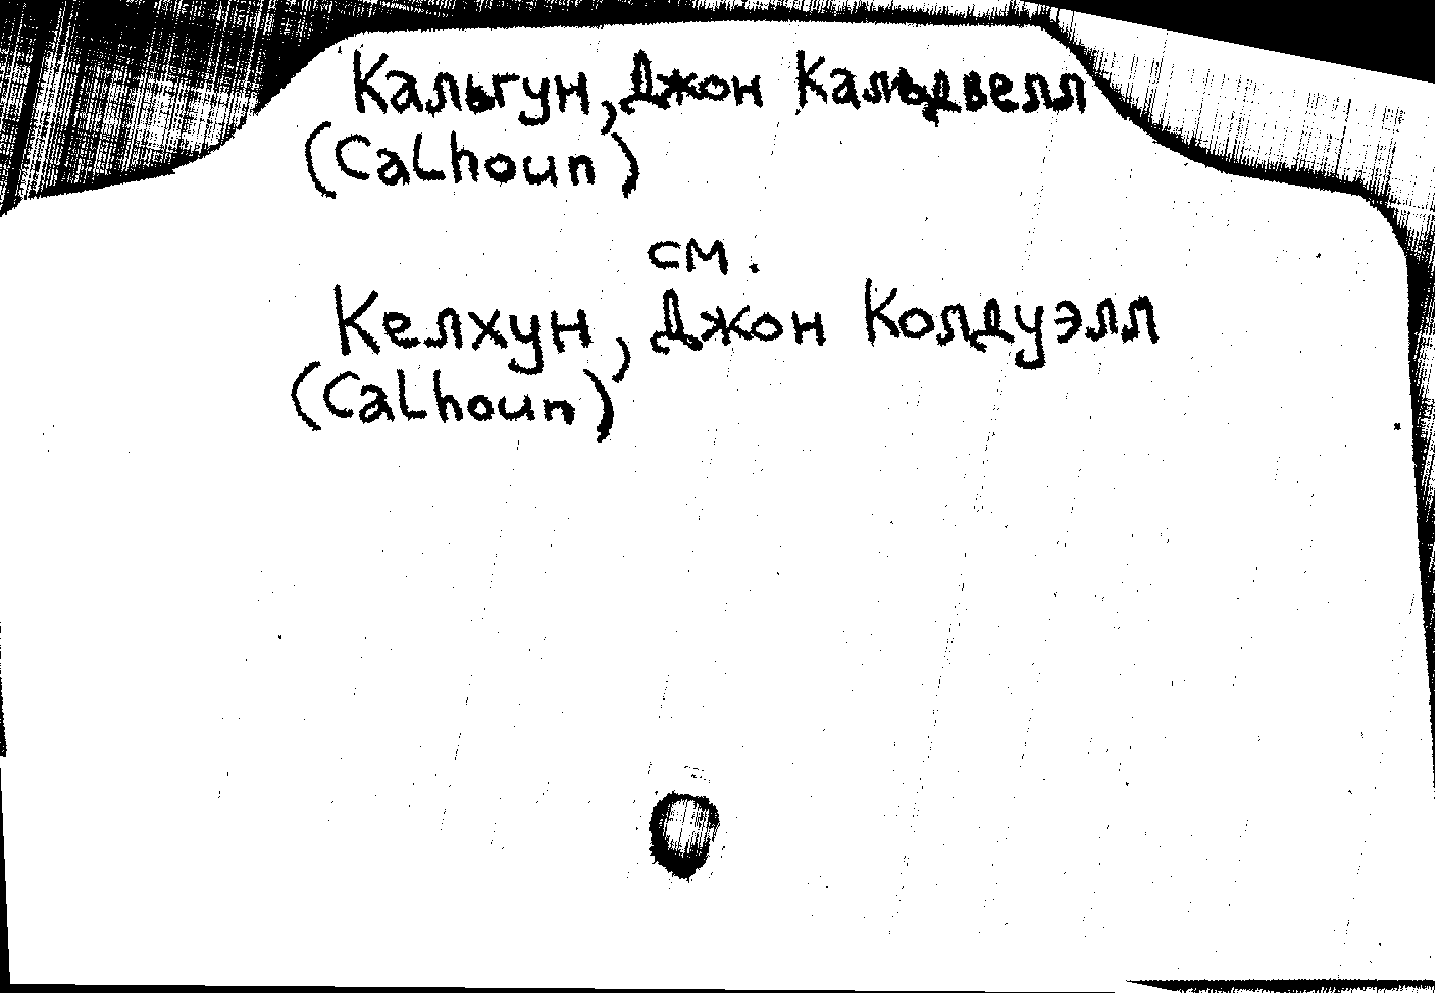 Кальгун, Джон Кальдвелл
(Calhoun)
см.
Келхун, Джон Колдуэлл
(Calhoun)